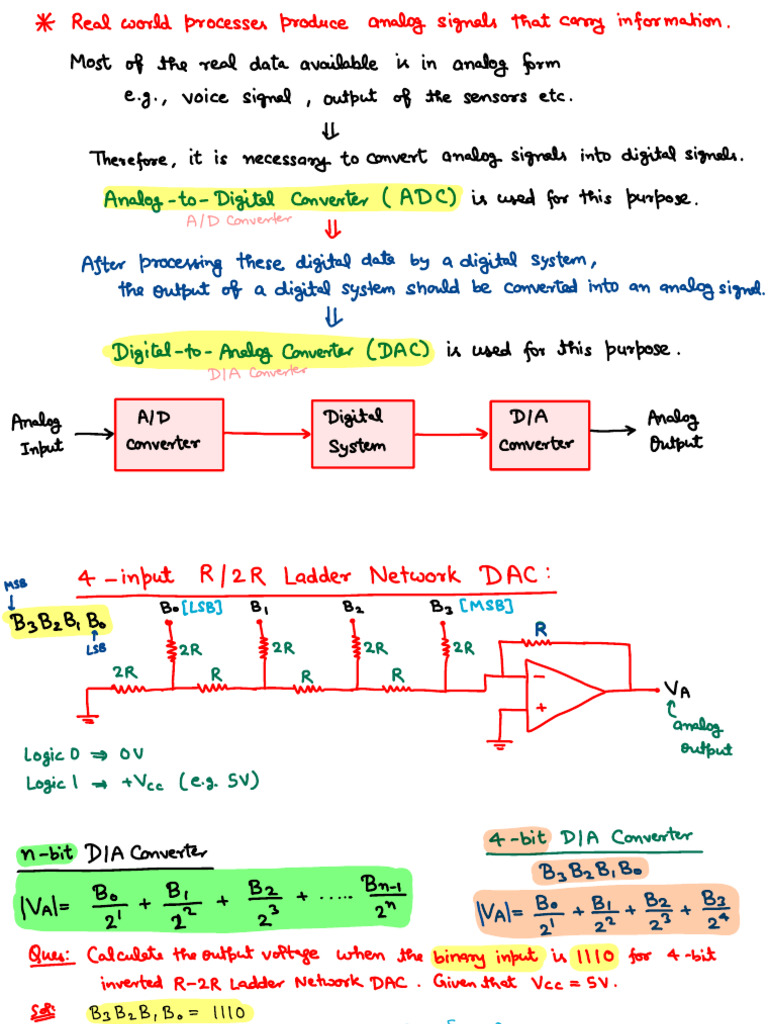 * Real world processes produce analog signals that carry information.
Most of the real data available is in analog form
e.g., voice signal, output of the sensors etc.
⇓
Therefore, it is necessary to convert analog signals into digital signals.
Analog-to-Digital Converter (ADC) is used for this purpose.
A/D Converter
⇓
After processing these digital data by a digital system,
the output of a digital system should be converted into an analog signal.
⇓
Digital-to-Analog Converter (DAC) is used for this purpose.
D/A Converter
Analog Input
A/D Converter
Digital System
D/A Converter
Analog Output
4-input R/2R Ladder Network DAC:
MSB
B₃B₂B₁B₀
LSB
B₀ [LSB] B₁ B₂ B₃ [MSB]
2R 2R 2R 2R
R
2R R R R
- +
V_A
analog output
Logic 0 ⇒ 0V
Logic 1 → +Vcc (e.g. 5V)
n-bit D/A Converter
|V_A| = B₀/2¹ + B₁/2² + B₂/2³ + ..... Bn-1/2ⁿ
4-bit D/A Converter
B₃B₂B₁B₀
|V_A| = B₀/2¹ + B₁/2² + B₂/2³ + B₃/2⁴
Ques: Calculate the output voltage when the binary input is 1110 for 4-bit
inverted R-2R Ladder Network DAC. Given that Vcc = 5V.
Sol: B₃B₂B₁B₀ = 1110